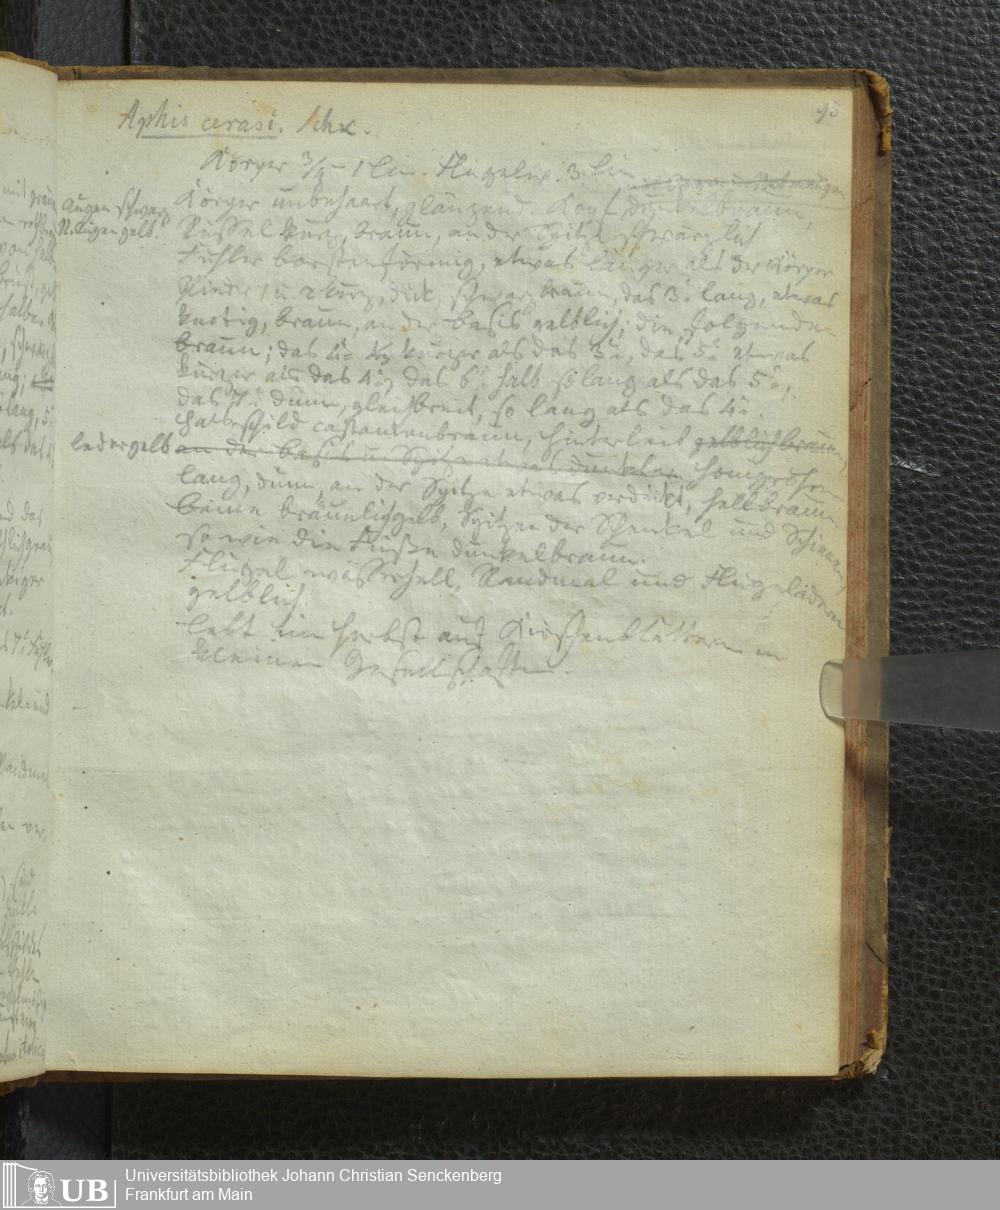 95
Aphis cerasi. Schx.
Körper 3/4 - 1 lin. Flügelw. 3 lin.
Augen schwarz
N. Augen gelb.
Körper unbehaart, glänzend. Kopf dunkelbraun,
Rüssel kurz, braun, an der Spitze schwärzlich
Fühler borstenförmig, etwas länger als der Körper
Glieder 1 u. 2 kurz, dick, schwarzbraun, das 3te lang, etwas
knotig, braun, an der Basis gelblich; die folgenden
braun; das 4te kürzer als das 3te, das 5te etwas
kürzer als das 4te, das 6te halb so lang als das 5te,
das 7te dünn, gleichbreit, so lang als das 4te.
Halsschild castanienbraun, Hinterleib gelblichbraun,
ledergelb
an der Basis u. Spitze etwas dunkler Honigröhren
lang, dünn, an der Spitze etwas verdickt, hellbraun.
Beine bräunlichgelb, Spitzen der Schenkel und Schienen,
so wie die Füsse dunkelbraun.
Flügel wasserhell, Randmal und Flügeladern
gelblich.
Lebt im Herbst auf Kirschenblättern in
kleinen Gesellschaften.
UB
Universitätsbibliothek Johann Christian Senckenberg
Frankfurt am Main